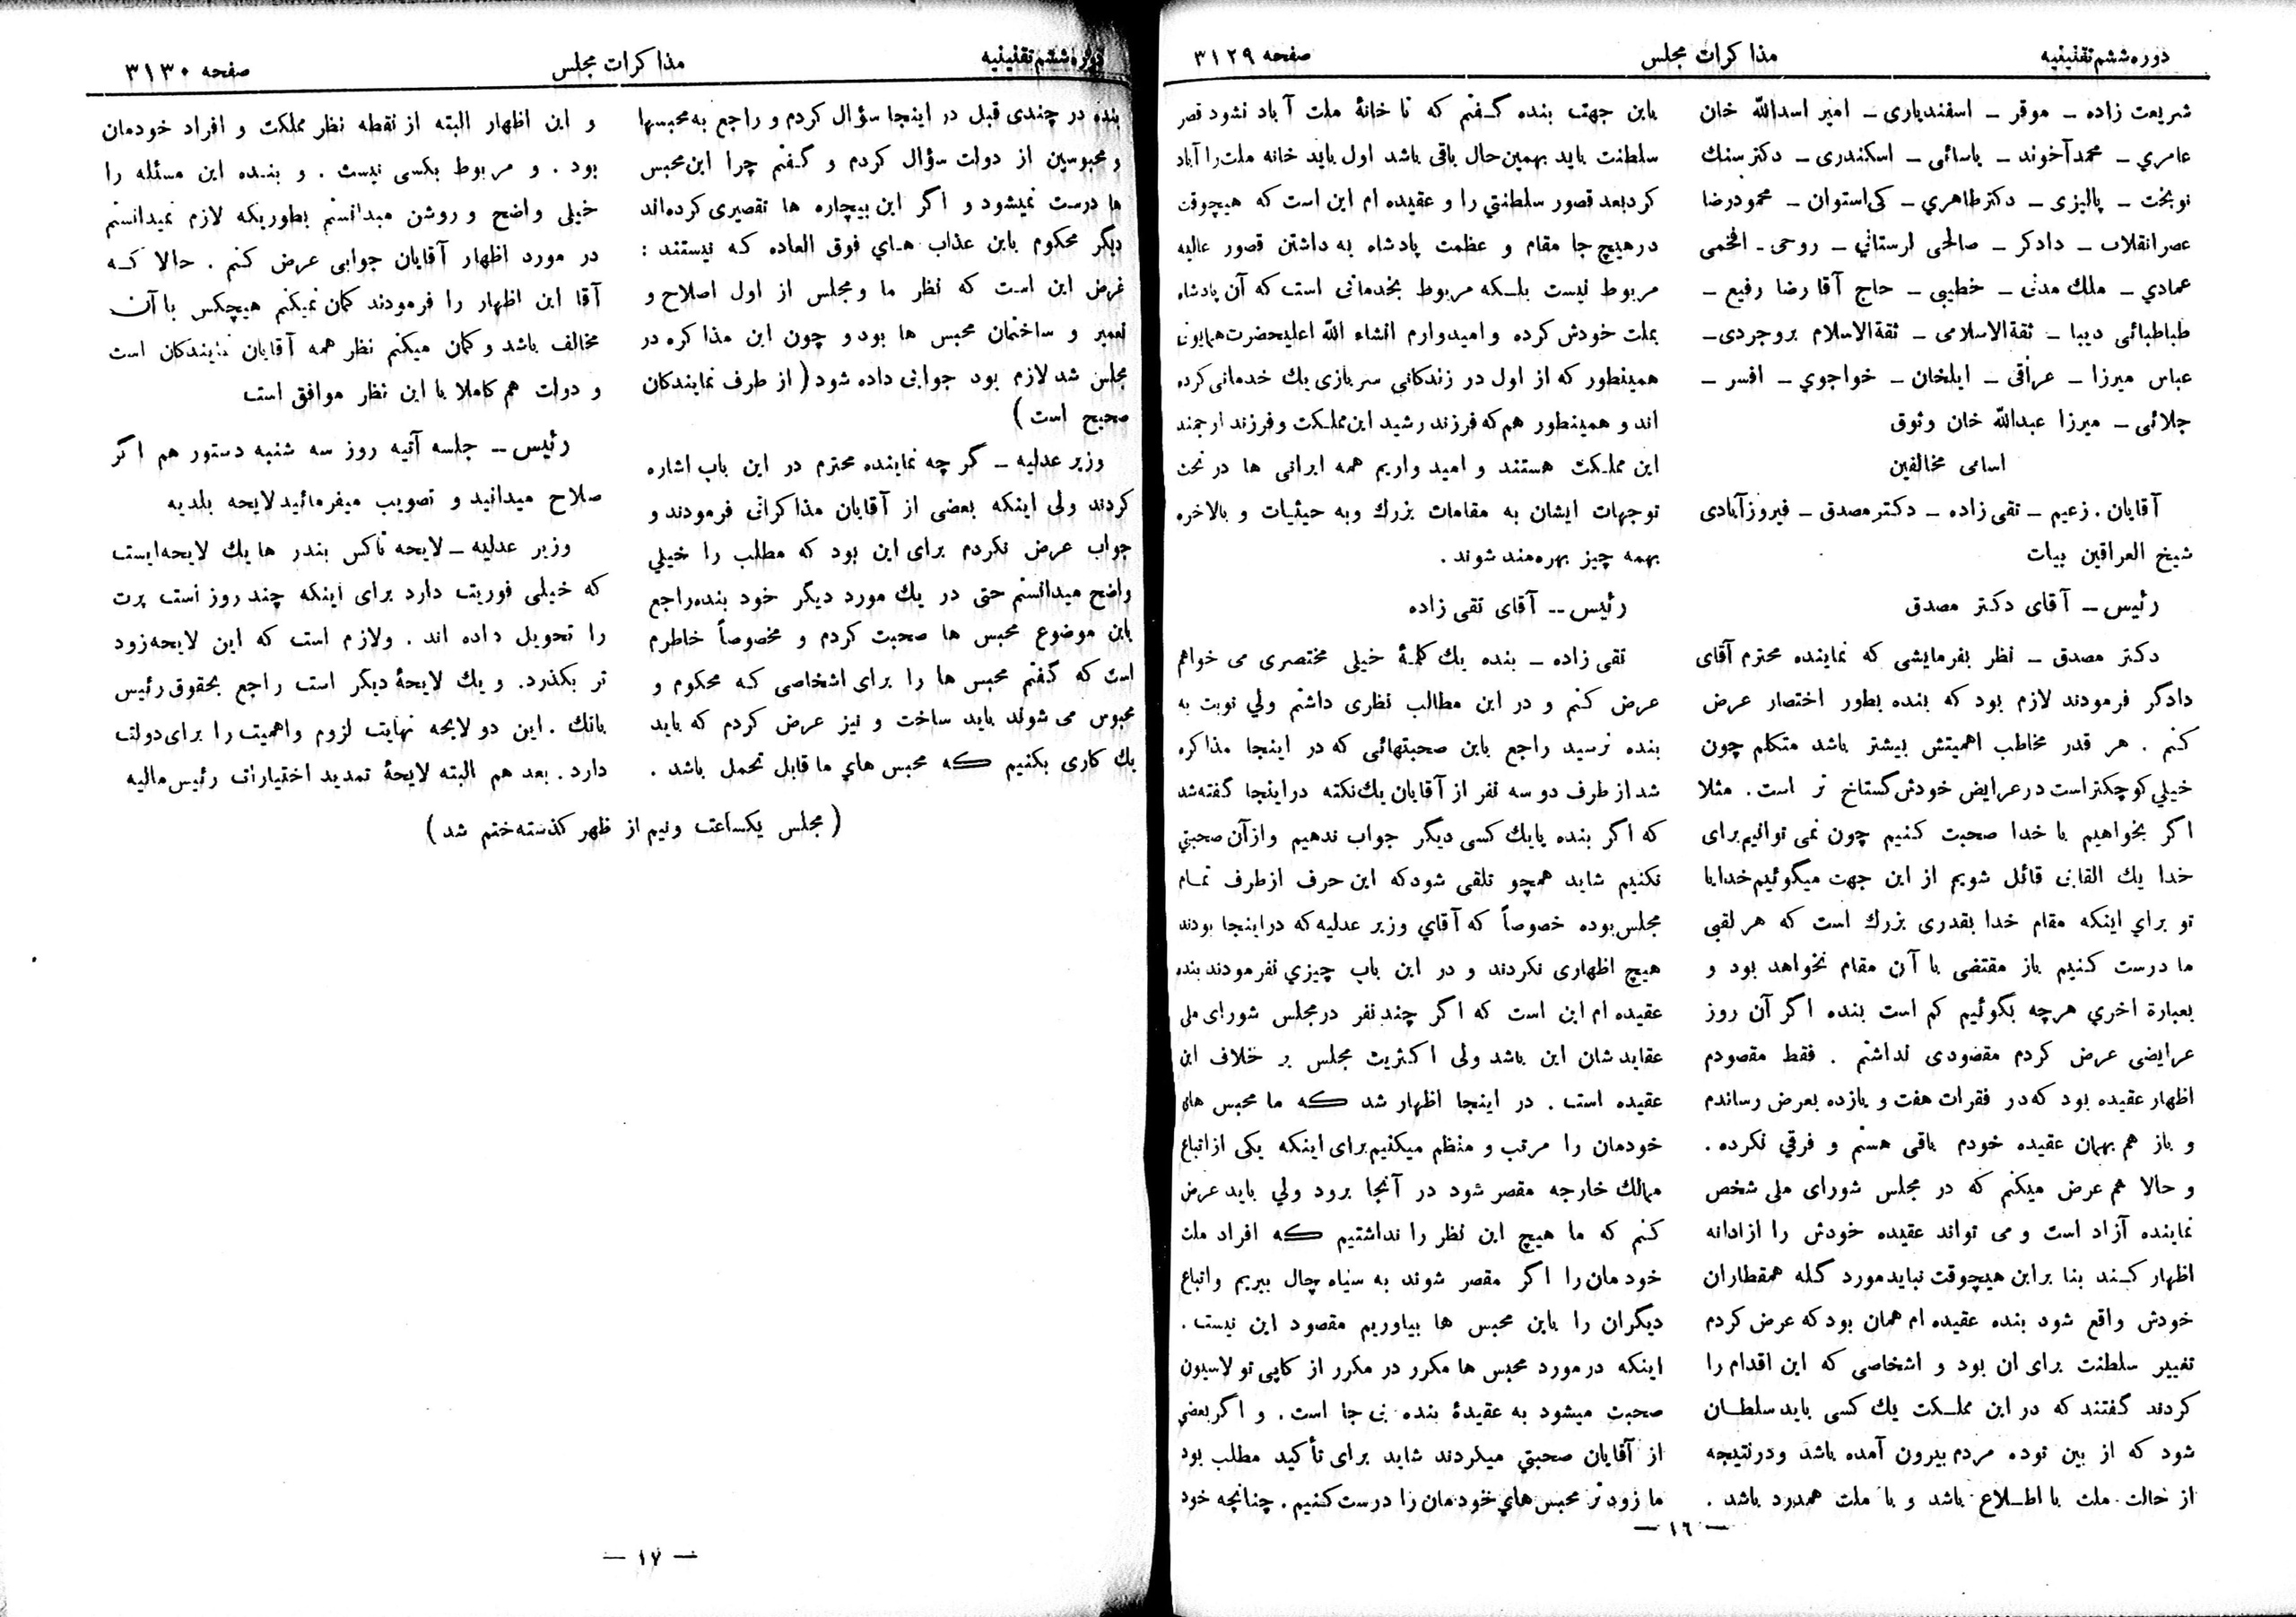 دوره ششم تقنینیه
مذاکرات مجلس
صفحه ۳۱۲۹
شریعت زاده ــ موقر ــ اسفندیاری ــ امیر اسدالله خان
عامري ــ محمد آخوند ــ یاسائی ــ اسکندری ــ دکتر سنك
نوبخت ــ پالیزی ــ دکتر طاهري ــ کی استوان ــ محمود رضا
عصر انقلاب ــ دادکر ــ صالحی لرستاني ــ روحی ــ افخمی
عمادي ــ ملك مدنی ــ خطیبی ــ حاج آقا رضا رفیع ــ
طباطبائی دیبا ــ ثقة الاسلامی ــ ثقة الاسلام بروجردی ــ
عباس میرزا ــ عراقی ــ ایلخان ــ خواجوي ــ افسر ــ
جلائی ــ میرزا عبدالله خان وثوق
اسامی مخالفین
آقایان . زعیم ــ تقی زاده ــ دکتر مصدق ــ فیروز آبادی
شیخ العراقین بیات
رئیس ــ آقای دکتر مصدق
دکتر مصدق ــ نظر بفرمایشی که نماینده محترم آقای
دادگر فرمودند لازم بود که بنده بطور اختصار عرض
کنم . هر قدر مخاطب اهمیتش بیشتر باشد متکلم چون
خیلي کوچکتر است در عرایض خودش گستاخ تر است . مثلا
اکر بخواهیم با خدا صحبت کنیم چون نمی توانیم برای
خدا یك القابی قائل شویم از این جهت میگوئیم خدایا
تو براي اینکه مقام خدا بقدری بزرك است که هر لقبی
ما درست کنیم باز مقتضی با آن مقام نخواهد بود و
بعبارة اخري هرچه بگوئیم کم است بنده اگر آن روز
عرایضی عرض کردم مقصودی نداشتم . فقط مقصودم
اظهار عقیده بود که در فقرات هفت و یازده بعرض رساندم
و باز هم بهمان عقیده خودم باقی هستم و فرقي نکرده .
و حالا هم عرض میکنم که در مجلس شورای ملی شخص
نماینده آزاد است و می تواند عقیده خودش را ازادانه
اظهار کند بنا براین هیچوقت نباید مورد گله همقطاران
خودش واقع شود بنده عقیده ام همان بود که عرض کردم
تغییر سلطنت برای ان بود و اشخاصی که این اقدام را
کردند گفتند که در این مملکت یك کسی باید سلطان
شود که از بین توده مردم بیرون آمده باشد و در نتیجه
از حالت ملت با اطلاع باشد و با ملت همدرد باشد .
باین جهت بنده گفتم که تا خانهٔ ملت آباد نشود قصر
سلطنت باید بهمین حال باقی باشد اول باید خانه ملت را آباد
کرد بعد قصور سلطنتي را و عقیده ام این است که هیچوقت
در هیچ جا مقام و عظمت پادشاه به داشتن قصور عالیه
مربوط نیست بلکه مربوط بخدماتی است که آن پادشاه
بملت خودش کرده و امیدوارم انشاء الله اعلیحضرت همایونی
همینطور که از اول در زندکاني سربازی یك خدماتی کرده
اند و همینطور هم که فرزند رشید این مملکت و فرزند ارجمند
این مملکت هستند و امید واریم همه ایرانی ها در تحت
توجهات ایشان به مقامات بزرك و به حیثیات و بالاخره
بهمه چیز بهره مند شوند .
رئیس ــ آقای تقی زاده
تقی زاده ــ بنده یك کلمهٔ خیلی مختصری می خواهم
عرض کنم و در این مطالب نظری داشتم ولي نوبت به
بنده نرسید راجع باین صحبتهائی که در اینجا مذاکره
شد از طرف دو سه نفر از آقایان یك نکته در اینجا گفته شد
که اگر بنده یا یك کسی دیگر جواب ندهیم و از آن صحبتي
نکنیم شاید همچو تلقی شود که این حرف از طرف تمام
مجلس بوده خصوصاً که آقاي وزیر عدلیه که در اینجا بودند
هیچ اظهاری نکردند و در این باب چیزي نفرمودند بنده
عقیده ام این است که اگر چند نفر در مجلس شورای ملی
عقاید شان این باشد ولی اکثریت مجلس بر خلاف این
عقیده است . در اینجا اظهار شد که ما محبس های
خودمان را مرتب و منظم میکنیم برای اینکه یکی از اتباع
ممالك خارجه مقصر شود در آنجا برود ولي باید عرض
کنم که ما هیچ این نظر را نداشتیم که افراد ملت
خودمان را اگر مقصر شوند به سیاه چال ببریم و اتباع
دیگران را باین محبس ها بیاوریم مقصود این نیست .
اینکه در مورد محبس ها مکرر در مکرر از کاپی تولاسیون
صحبت میشود به عقیدهٔ بنده بی جا است . و اگر بعضی
از آقایان صحبتي میکردند شاید برای تأکید مطلب بود
ما زودتر محبس هاي خودمان را درست کنیم . چنانچه خود
— ۱٦ —
دوره ششم تقنینیه
مذاکرات مجلس
صفحه ۳۱۳۰
بنده در چندی قبل در اینجا سؤال کردم و راجع به محبسها
و محبوسین از دولت سؤال کردم و گفتم چرا این محبس
ها درست نمیشود و اگر این بیچاره ها تقصیری کرده اند
دیگر محکوم باین عذاب هاي فوق العاده که نیستند :
غرض این است که نظر ما و مجلس از اول اصلاح و
تعمیر و ساختمان محبس ها بود و چون این مذاکره در
مجلس شد لازم بود جوابی داده شود ( از طرف نمایندکان
صحیح است )
وزیر عدلیه ــ گر چه نماینده محترم در این باب اشاره
کردند ولی اینکه بعضی از آقایان مذاکراتی فرمودند و
جواب عرض نکردم برای این بود که مطلب را خیلي
واضح میدانستم حتی در یك مورد دیگر خود بنده راجع
باین موضوع محبس ها صحبت کردم و مخصوصاً خاطرم
است که گفتم محبس ها را برای اشخاصی که محکوم و
محبوس می شوند باید ساخت و نیز عرض کردم که باید
یك کاری بکنیم که محبس هاي ما قابل تحمل باشد .
و این اظهار البته از نقطه نظر مملکت و افراد خودمان
بود . و مربوط بکسی نیست . و بنده این مسئله را
خیلی واضح و روشن میدانستم بطوریکه لازم نمیدانستم
در مورد اظهار آقایان جوابی عرض کنم . حالا که
آقا این اظهار را فرمودند کمان نمیکنم هیچکس با آن
مخالف باشد و کمان میکنم نظر همه آقایان نمایندکان است
و دولت هم کاملا با این نظر موافق است
رئیس ــ جلسه آتیه روز سه شنبه دستور هم اکر
صلاح میدانید و تصویب میفرمائید لایحه بلدیه
وزیر عدلیه ــ لایحه تاکس بندر ها یك لایحه ایست
که خیلی فوریت دارد برای اینکه چند روز است پرت
را تحویل داده اند . ولازم است که این لایحه زود
تر بکذرد . و یك لایحهٔ دیکر است راجع بحقوق رئیس
بانك . این دو لایحه نهایت لزوم و اهمیت را برای دولت
دارد . بعد هم البته لایحهٔ تمدید اختیارات رئیس مالیه
( مجلس یکساعت ونیم از ظهر کذشته ختم شد )
— ۱۷ —